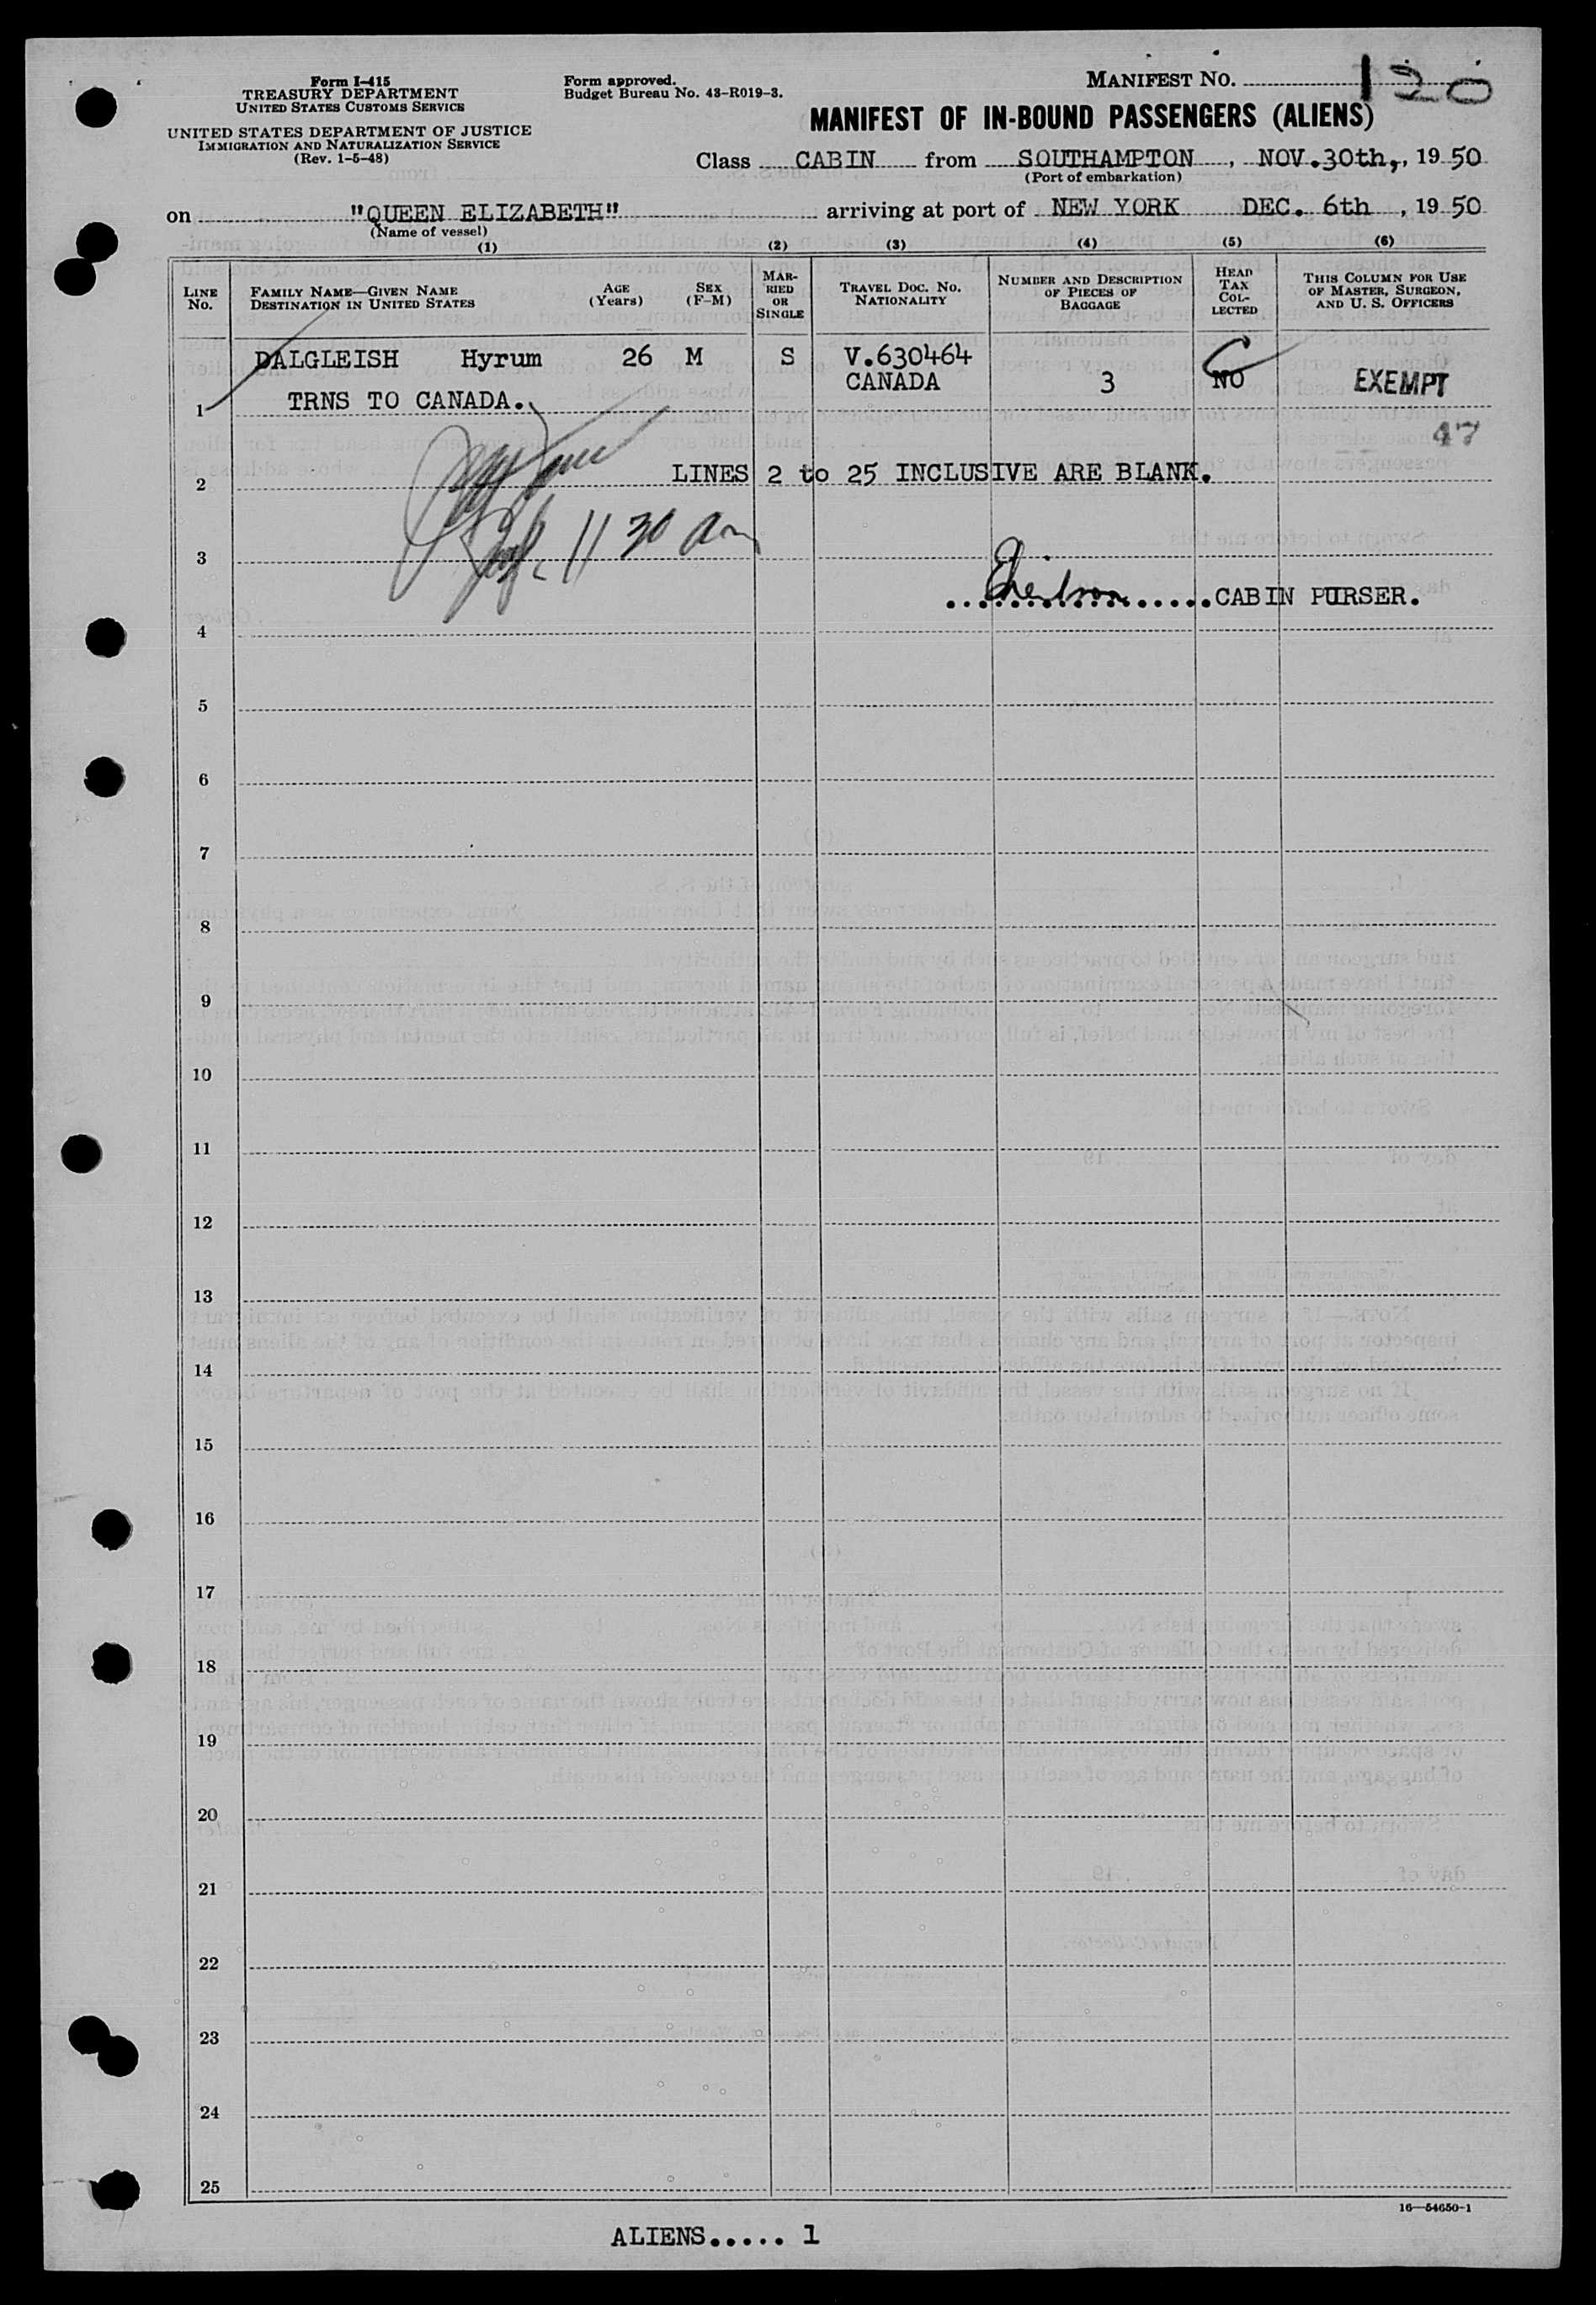 Form I-415
TREASURY DEPARTMENT
UNITED STATES CUSTOMS SERVICE
UNITED STATES DEPARTMENT OF JUSTICE
IMMIGRATION AND NATURALIZATION SERVICE
(Rev. 1-5-48)
Form approved.
Budget Bureau No. 43-R019-3.
MANIFEST NO. 120
MANIFEST OF IN-BOUND PASSENGERS (ALIENS)
Class CABIN from SOUTHAMPTON, NOV.30th,, 19 50
(Port of embarkation)
on "QUEEN ELIZABETH" arriving at port of NEW YORK DEC. 6th, 19 50
(Name of vessel)
(1) (2) (3) (4) (5) (6)
LINE No. FAMILY NAME—GIVEN NAME DESTINATION IN UNITED STATES AGE (Years) SEX (F-M) MARRIED OR SINGLE TRAVEL DOC. NO. NATIONALITY NUMBER AND DESCRIPTION OF PIECES OF BAGGAGE HEAD TAX COLLECTED THIS COLUMN FOR USE OF MASTER, SURGEON, AND U. S. OFFICERS
DALGLEISH Hyrum 26 M S V.630464
CANADA 3 NO EXEMPT
1 TRNS TO CANADA.
47
2 LINES 2 to 25 INCLUSIVE ARE BLANK.
11 30 am
3
..................CABIN PURSER.
4
5
6
7
8
9
10
11
12
13
14
15
16
17
18
19
20
21
22
23
24
25
16—54650-1
ALIENS..... 1